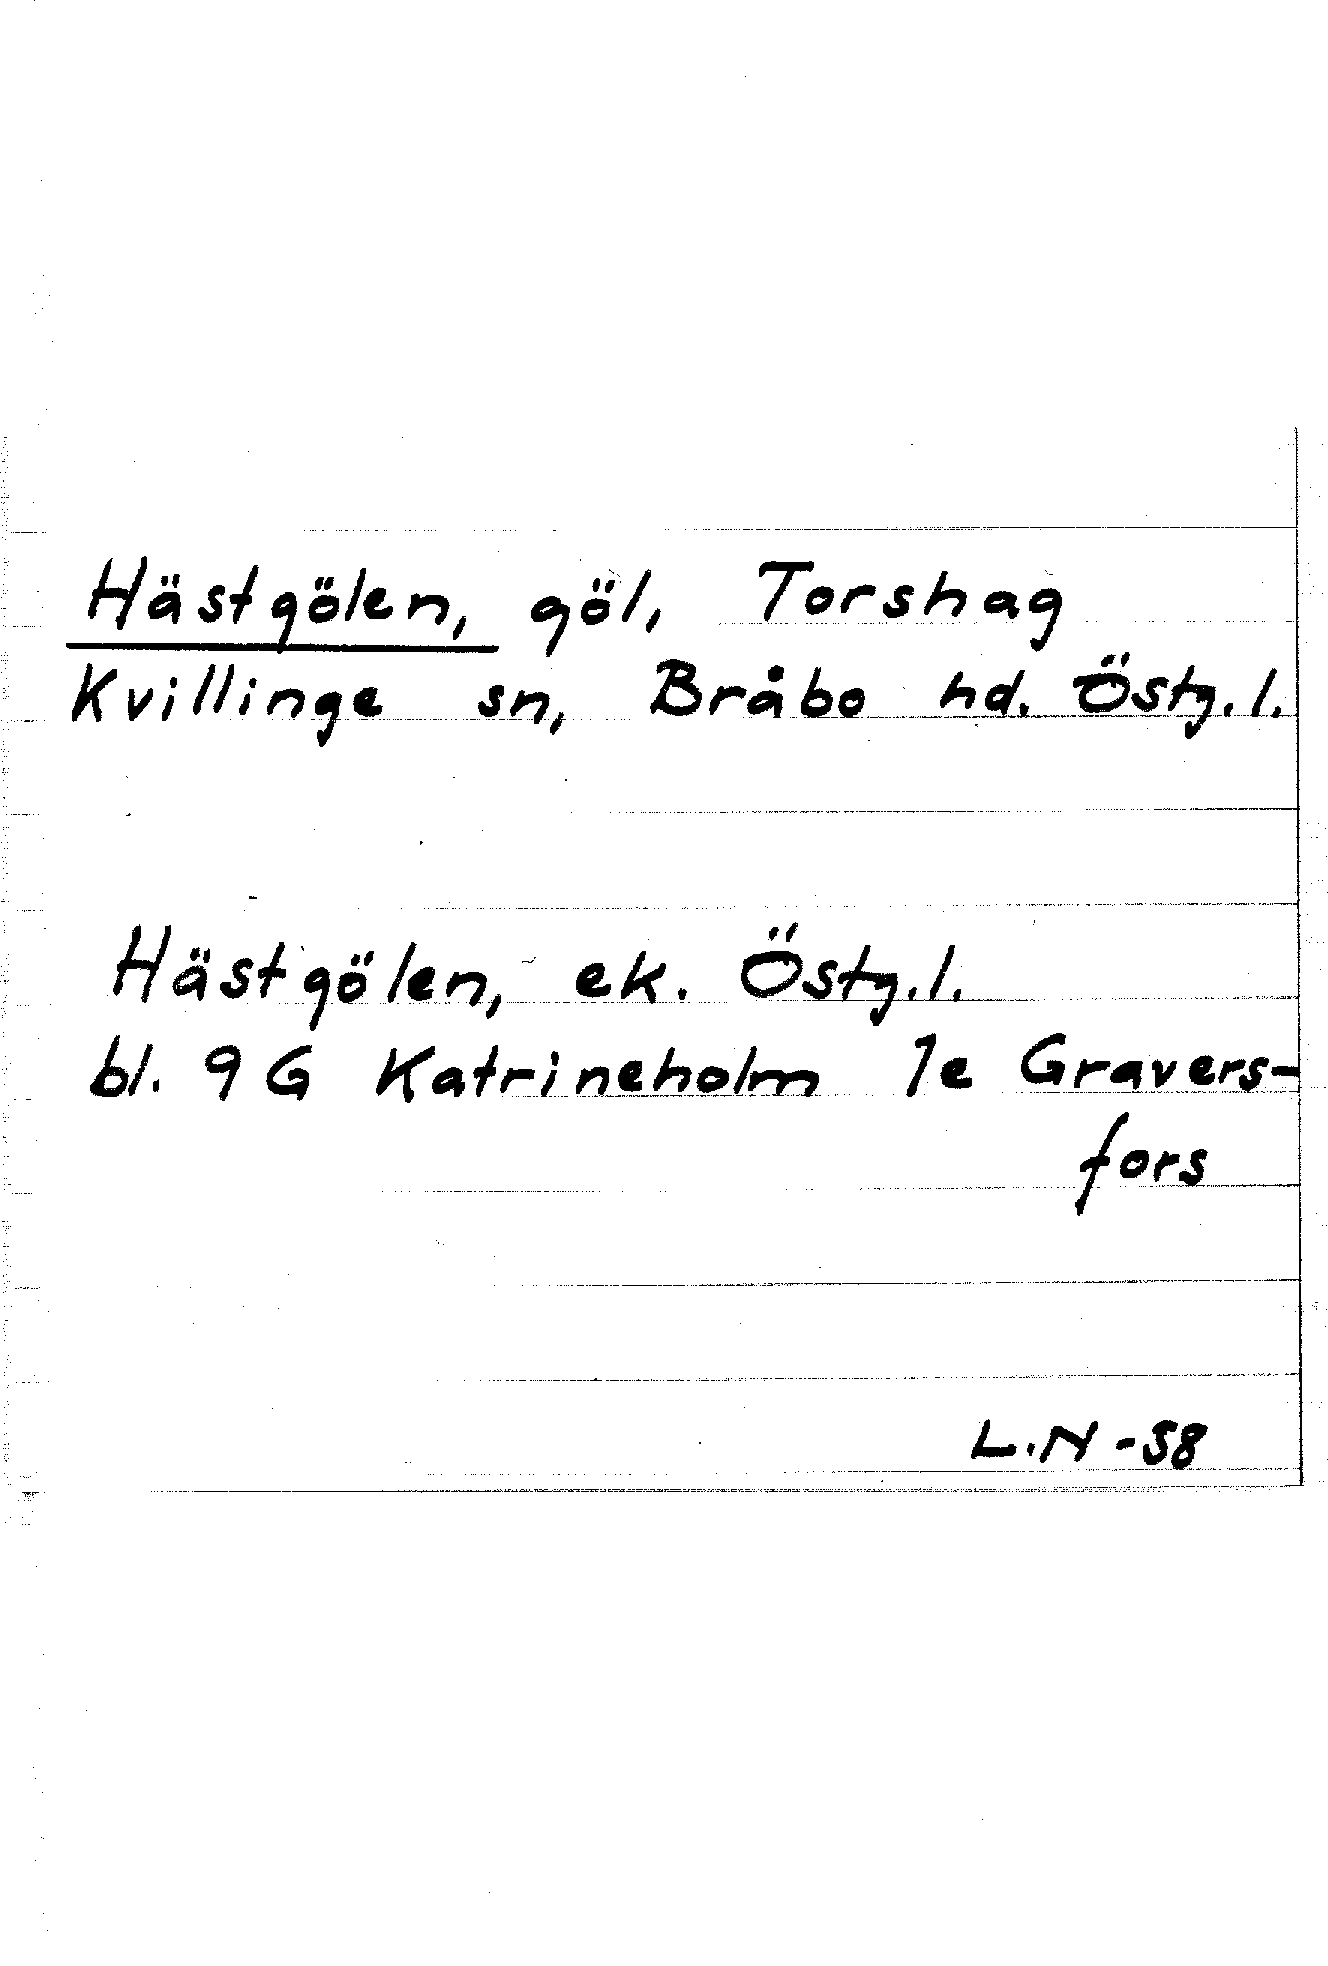 Hästgölen, göl, Torshag
Kvillinge sn, Bråbo hd. Östg.l.
Hästgölen, ek. Östg.l.
bl. 9 G Katrineholm 1e Gravers-
fors
L.N -58